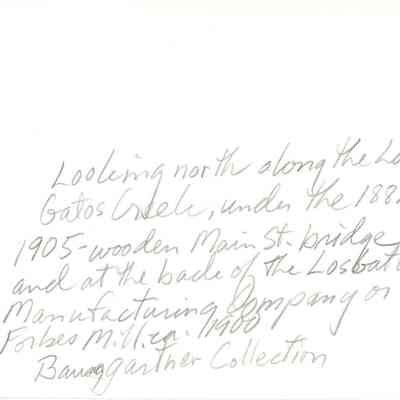 Looking north along the Lo
Gatos Creek, under the 188
1905-wooden Main St. bridge
and at the back of the Los Gat
Manufacturing Company or
Forbes Mill. ca. 1900
Baumgartner Collection